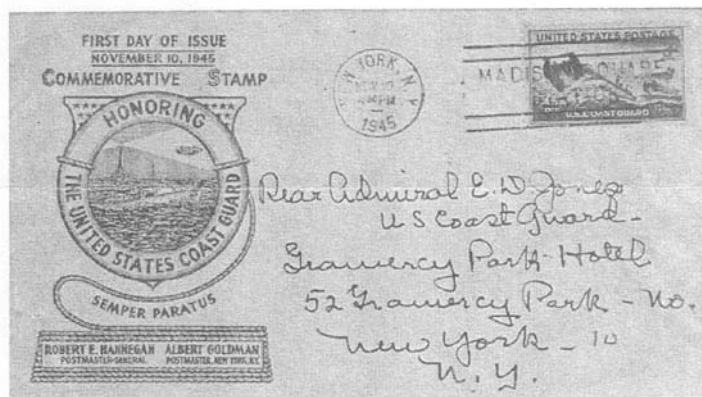 FIRST DAY OF ISSUE
NOVEMBER 10, 1945
COMMEMORATIVE STAMP
HONORING
THE UNITED STATES COAST GUARD
SEMPER PARATUS
ROBERT E. HANNEGAN
POSTMASTER-GENERAL
ALBERT GOLDMAN
POSTMASTER, NEW YORK, N.Y.
NEW YORK, N.Y.
PM
1945
UNITED STATES POSTAGE
MADISON SQUARE
STATION
U.S. COAST GUARD
Rear Admiral E. D. Jones
U S Coast Guard -
Gramercy Park Hotel
52 Gramercy Park - No.
New York - 10
N. Y.